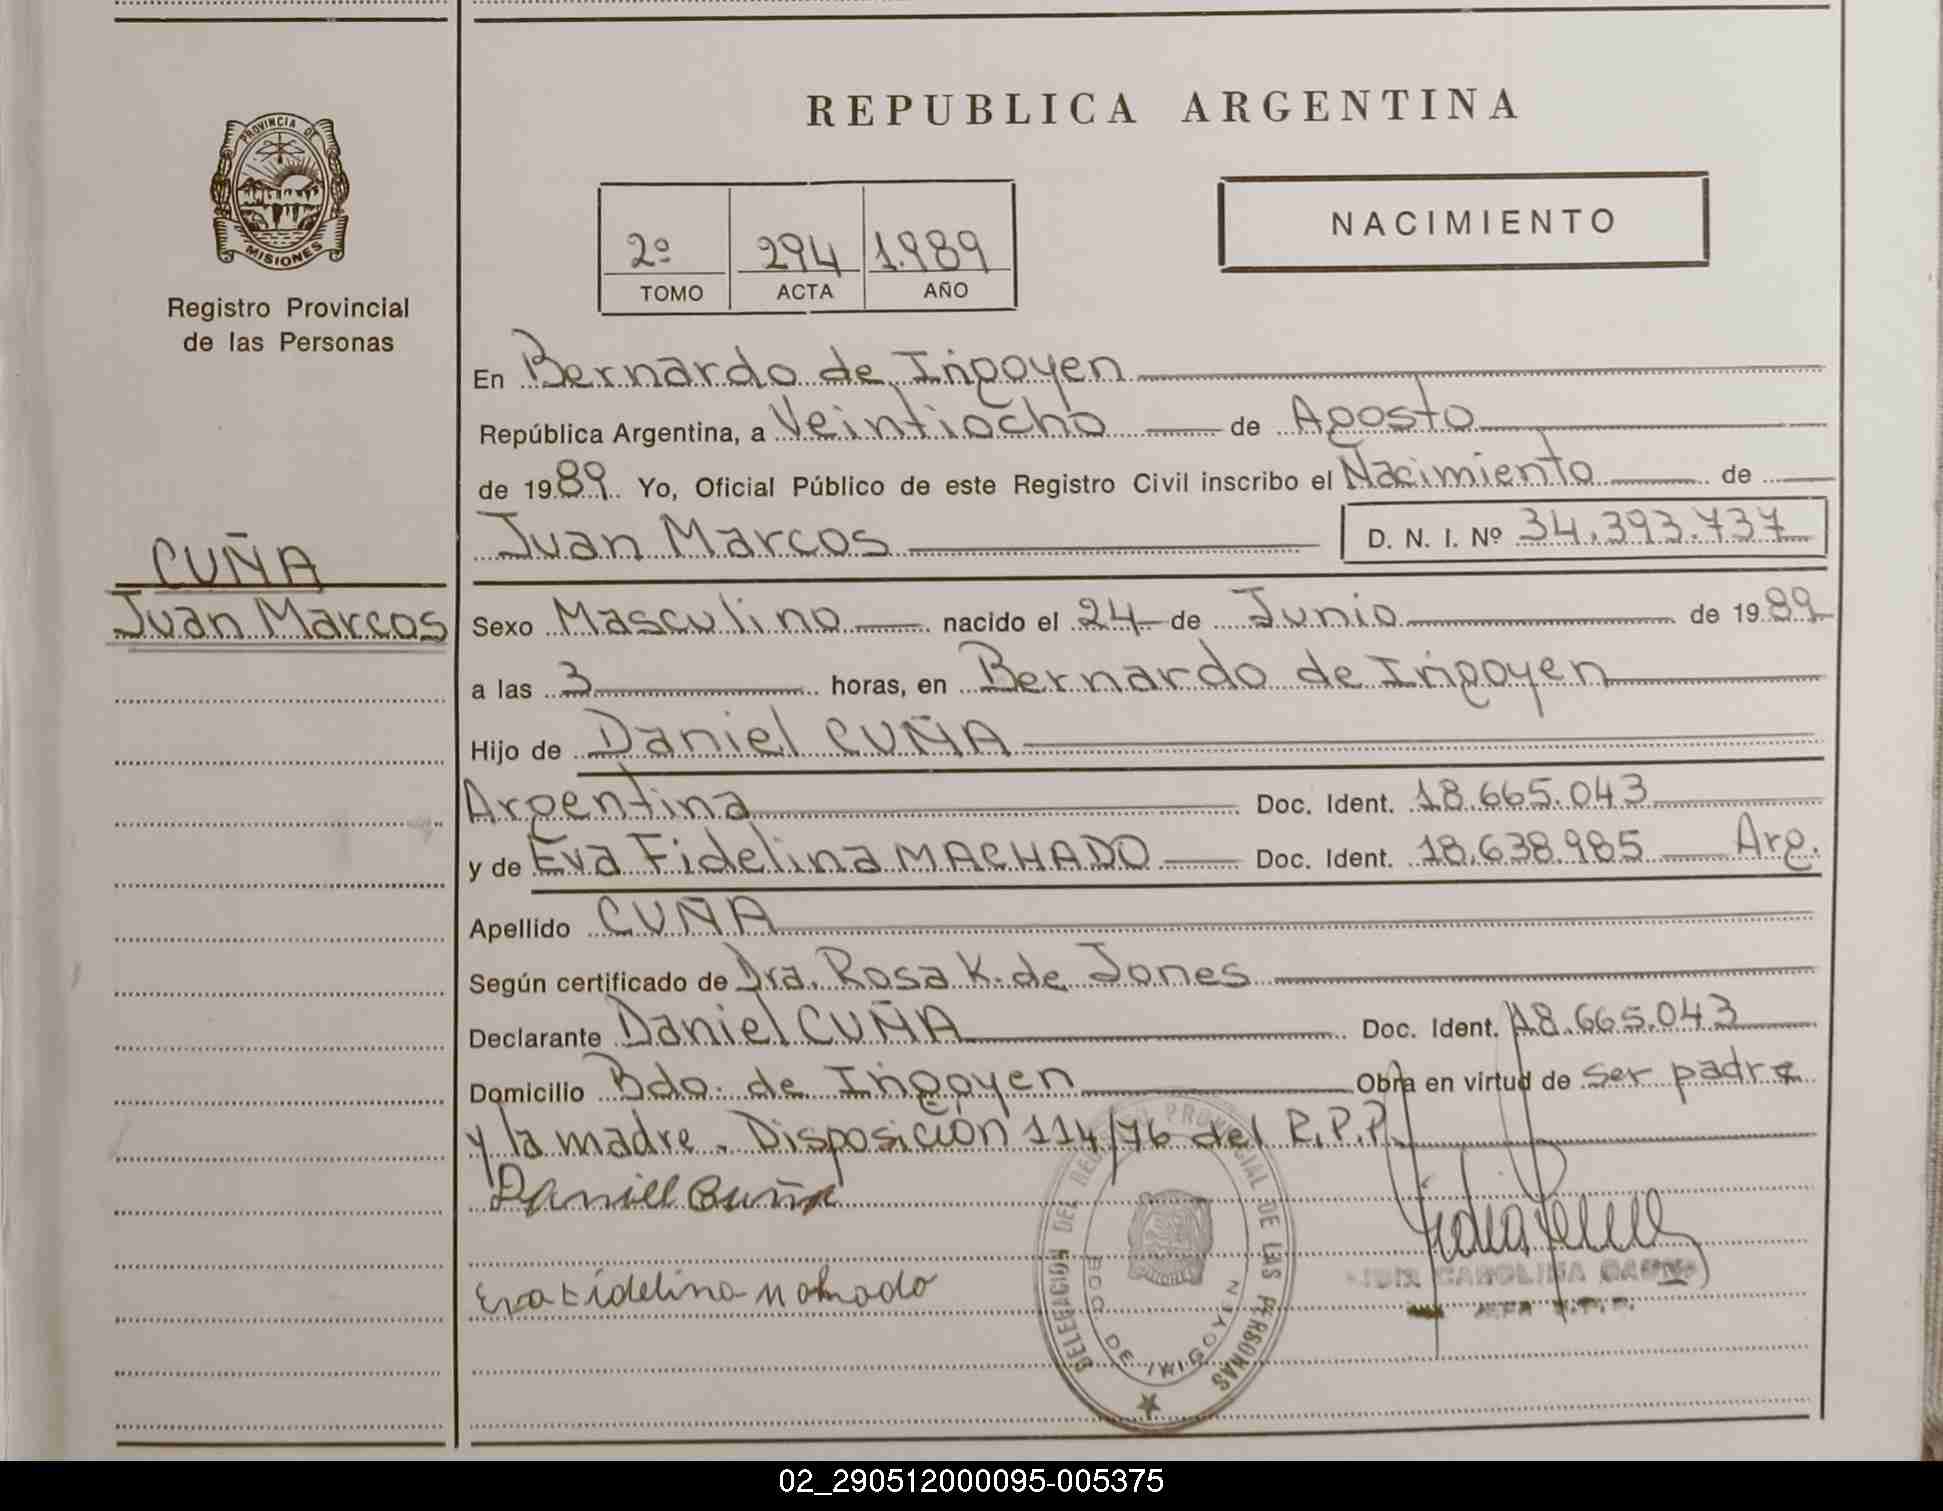 PROVINCIA DE
MISIONES
Registro Provincial
de las Personas
CUÑA
Juan Marcos
REPUBLICA ARGENTINA
2º 294 1.989
TOMO ACTA AÑO
NACIMIENTO
En Bernardo de Irigoyen
República Argentina, a Veintiocho de Agosto
de 1989 Yo, Oficial Público de este Registro Civil inscribo el Nacimiento de
Juan Marcos D. N. I. Nº 34.393.737
Sexo Masculino nacido el 24 de Junio de 1989
a las 3 horas, en Bernardo de Irigoyen
Hijo de Daniel CUÑA
Argentina Doc. Ident. 18.665.043
y de Eva Fidelina MACHADO Doc. Ident. 18.638.985 Arg.
Apellido CUÑA
Según certificado de Dra. Rosa K. de Jones
Declarante Daniel CUÑA Doc. Ident. 18.665.043
Domicilio Bdo. de Irigoyen Obra en virtud de ser padre
y la madre. Disposición 114/76 del R.P.P.
Daniel Cuña
Eva Fidelina Machado
DELEGACION DEL REGISTRO PROVINCIAL DE LAS PERSONAS
BDO. DE IRIGOYEN
CAROLINA
JEFA
02_290512000095-005375